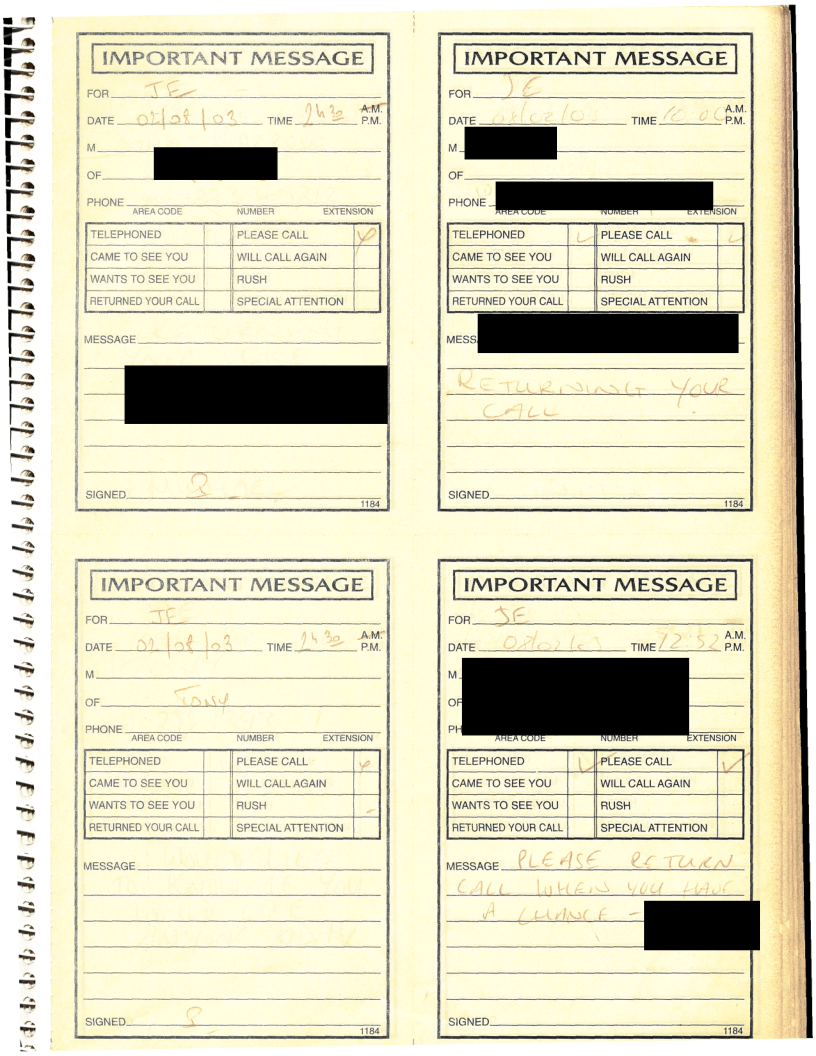 IMPORTANT MESSAGE
FOR JE
DATE 02/08/03 TIME 2430 A.M. P.M.
M
OF
PHONE
AREA CODE NUMBER EXTENSION
TELEPHONED PLEASE CALL
CAME TO SEE YOU WILL CALL AGAIN
WANTS TO SEE YOU RUSH
RETURNED YOUR CALL SPECIAL ATTENTION
MESSAGE
SIGNED
1184
IMPORTANT MESSAGE
FOR JE
DATE 08/02/03 TIME 10:00 A.M. P.M.
M
OF
PHONE
AREA CODE NUMBER EXTENSION
TELEPHONED ✓ PLEASE CALL ✓
CAME TO SEE YOU WILL CALL AGAIN
WANTS TO SEE YOU RUSH
RETURNED YOUR CALL SPECIAL ATTENTION
MESS
RETURNING YOUR
CALL
SIGNED
1184
IMPORTANT MESSAGE
FOR JE
DATE 02/08/03 TIME 2430 A.M. P.M.
M
OF TONY
PHONE
AREA CODE NUMBER EXTENSION
TELEPHONED PLEASE CALL
CAME TO SEE YOU WILL CALL AGAIN
WANTS TO SEE YOU RUSH
RETURNED YOUR CALL SPECIAL ATTENTION
MESSAGE
SIGNED
1184
IMPORTANT MESSAGE
FOR JE
DATE 08/02/03 TIME 12:52 A.M. P.M.
M
OF
PH
AREA CODE NUMBER EXTENSION
TELEPHONED ✓ PLEASE CALL ✓
CAME TO SEE YOU WILL CALL AGAIN
WANTS TO SEE YOU RUSH
RETURNED YOUR CALL SPECIAL ATTENTION
MESSAGE PLEASE RETURN
CALL WHEN YOU HAVE
A CHANCE -
SIGNED
1184